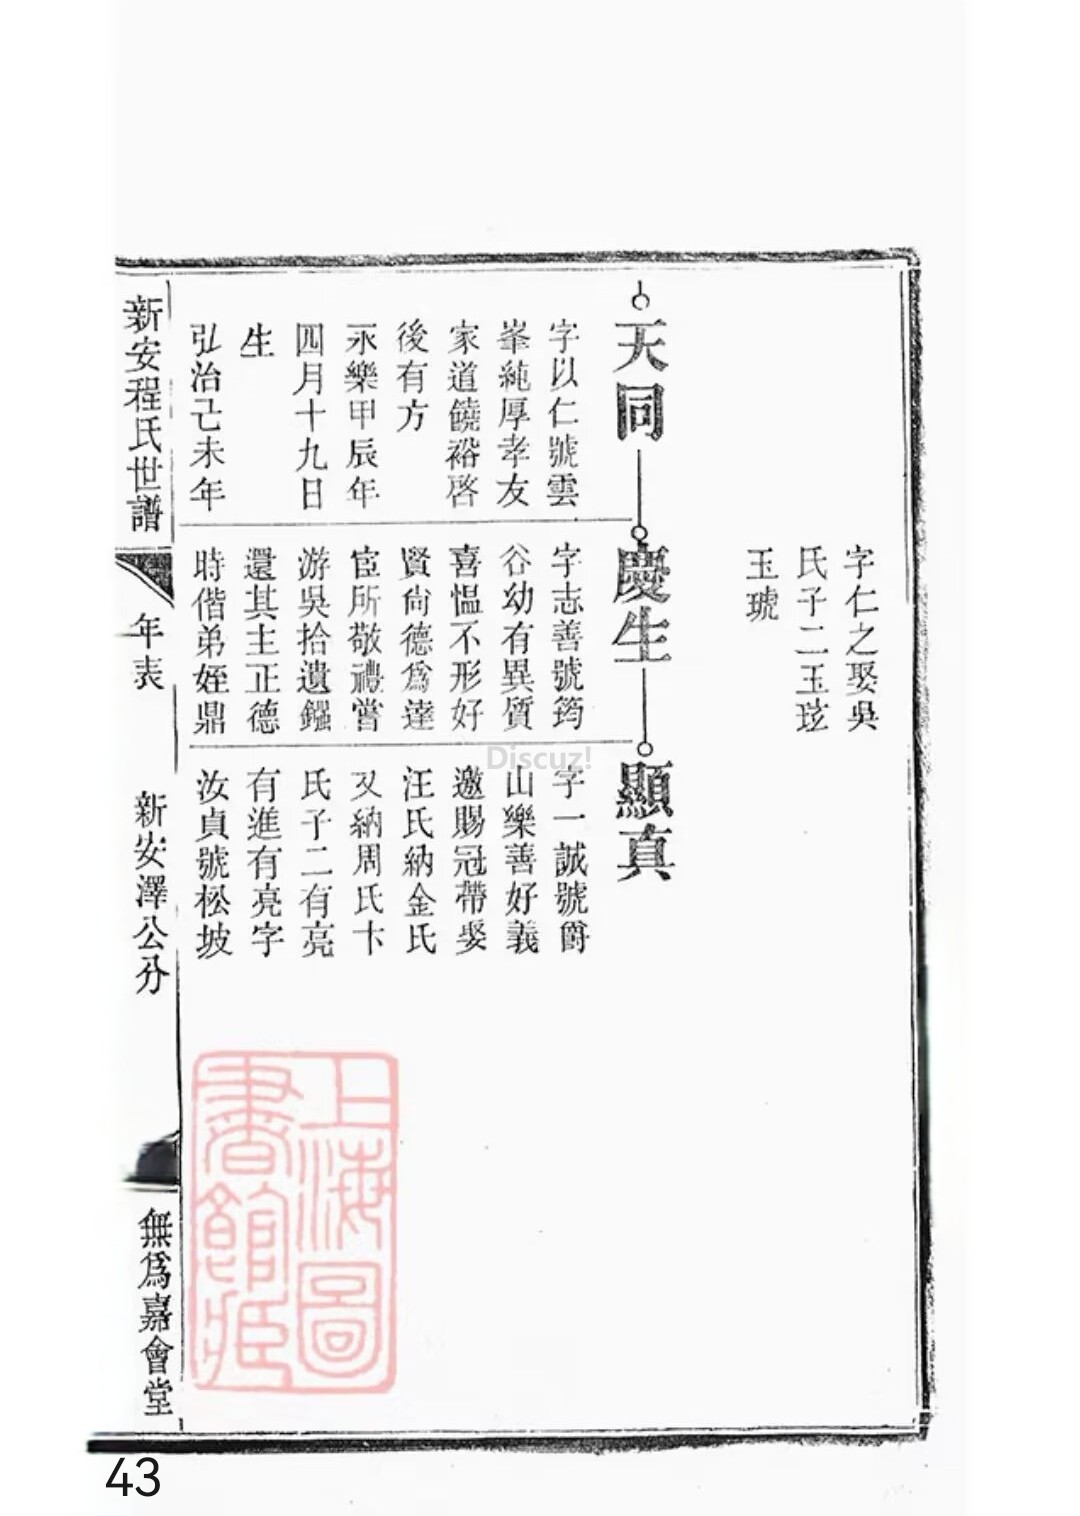 字仁之娶吳
氏子二玉玹
玉琥
天同
字以仁號雲
峯純厚孝友
家道饒裕啓
後有方
永樂甲辰年
四月十九日
生
弘治己未年
慶生
字志善號筠
谷幼有異質
喜慍不形好
賢尙德爲達
宦所敬禮嘗
游吳拾遺鏹
還其主正德
時偕弟姪鼎
顯真
字一誠號爵
山樂善好義
邀賜冠帶娶
汪氏納金氏
又納周氏卞
氏子二有亮
有進有亮字
汝貞號松坡
新安程氏世譜
年表
新安澤公分
無爲嘉會堂
上海圖
書館藏
Discuz!
43